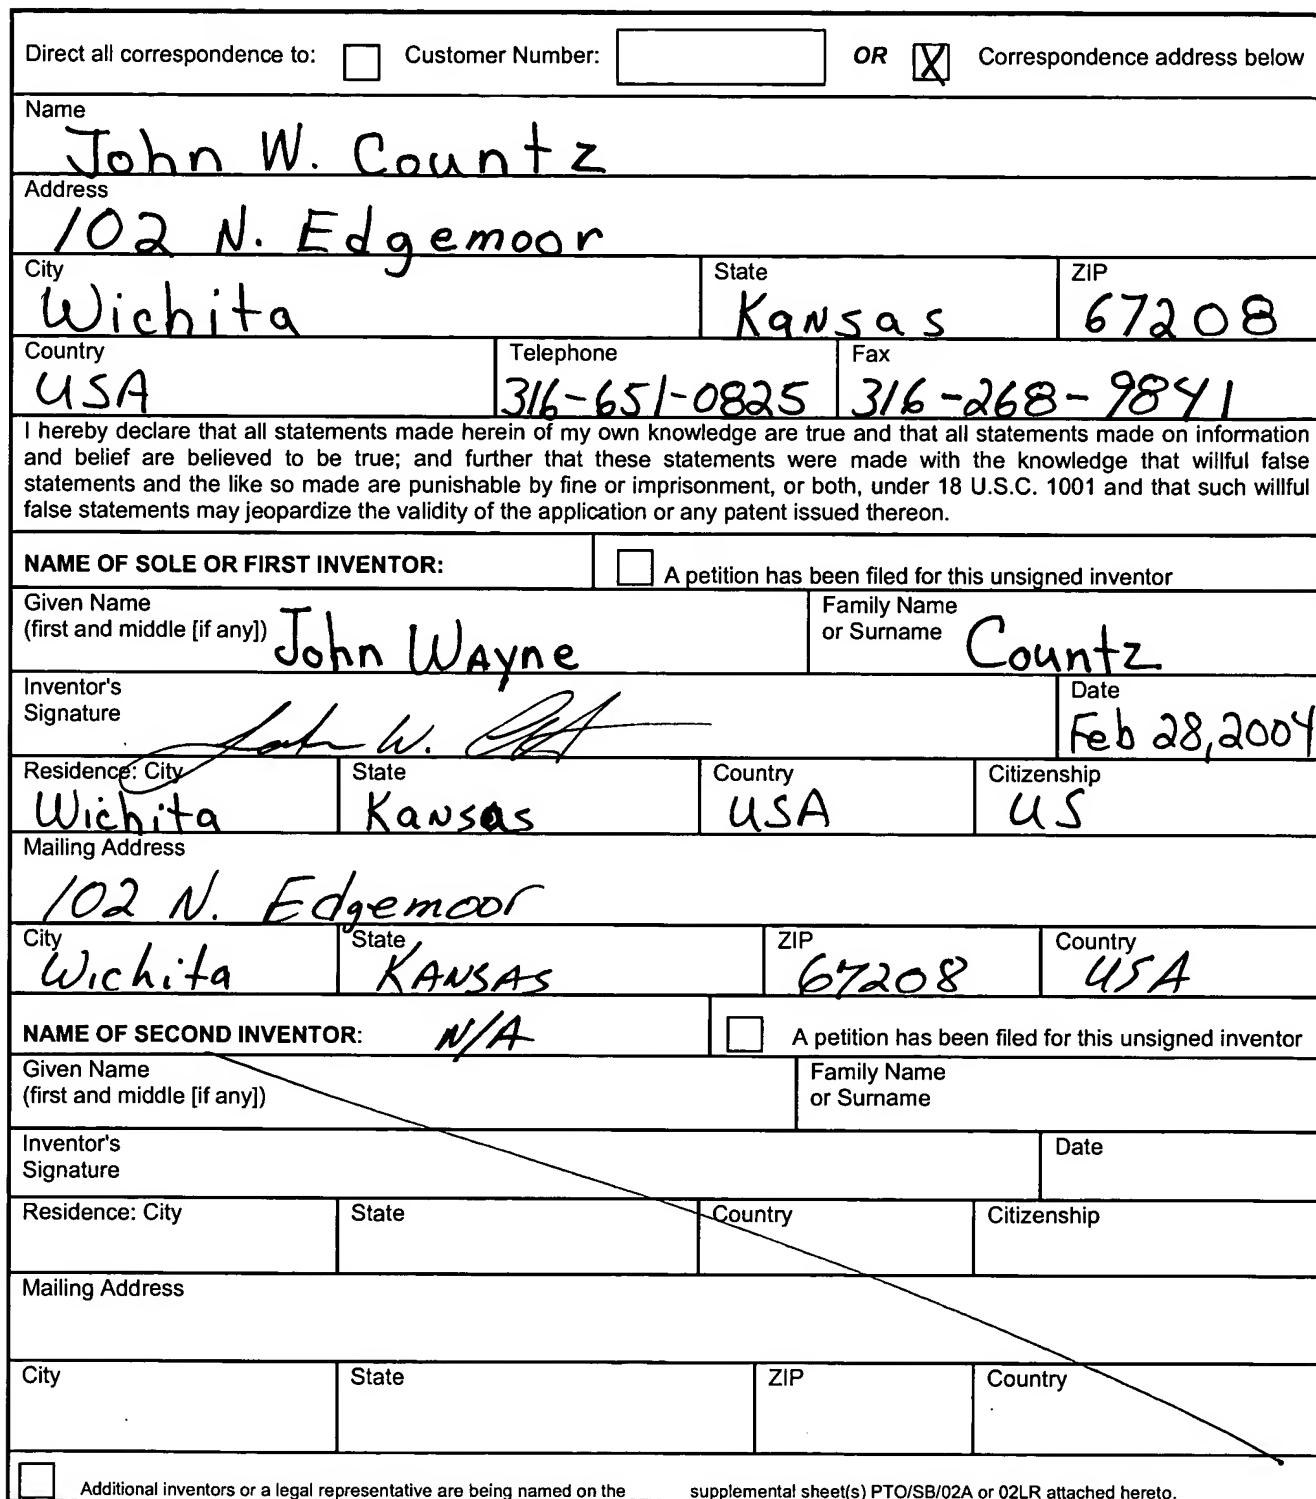 Direct all correspondence to: Customer Number: OR X Correspondence address below
Name
John W. Countz
Address
102 N. Edgemoor
City State ZIP
Wichita Kansas 67208
Country Telephone Fax
USA 316-651-0825 316-268-9841
I hereby declare that all statements made herein of my own knowledge are true and that all statements made on information
and belief are believed to be true; and further that these statements were made with the knowledge that willful false
statements and the like so made are punishable by fine or imprisonment, or both, under 18 U.S.C. 1001 and that such willful
false statements may jeopardize the validity of the application or any patent issued thereon.
NAME OF SOLE OR FIRST INVENTOR: A petition has been filed for this unsigned inventor
Given Name Family Name
(first and middle [if any]) John Wayne or Surname Countz
Inventor's Date
Signature John W. Feb 28, 2004
Residence: City State Country Citizenship
Wichita Kansas USA US
Mailing Address
102 N. Edgemoor
City State ZIP Country
Wichita KANSAS 67208 USA
NAME OF SECOND INVENTOR: N/A A petition has been filed for this unsigned inventor
Given Name Family Name
(first and middle [if any]) or Surname
Inventor's Date
Signature
Residence: City State Country Citizenship
Mailing Address
City State ZIP Country
Additional inventors or a legal representative are being named on the supplemental sheet(s) PTO/SB/02A or 02LR attached hereto.